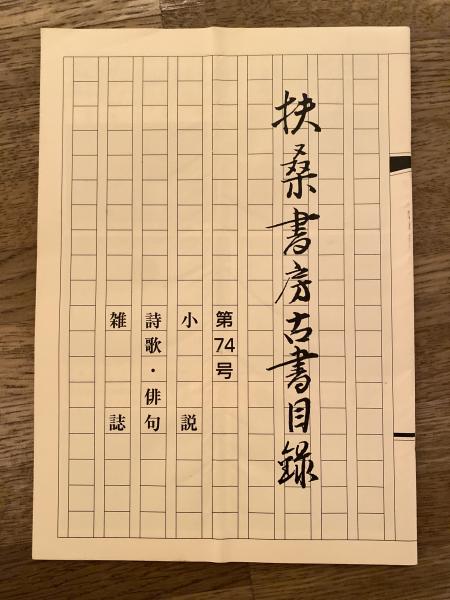 扶桑書房古書目録
第74号
小説
詩歌・俳句
雑誌